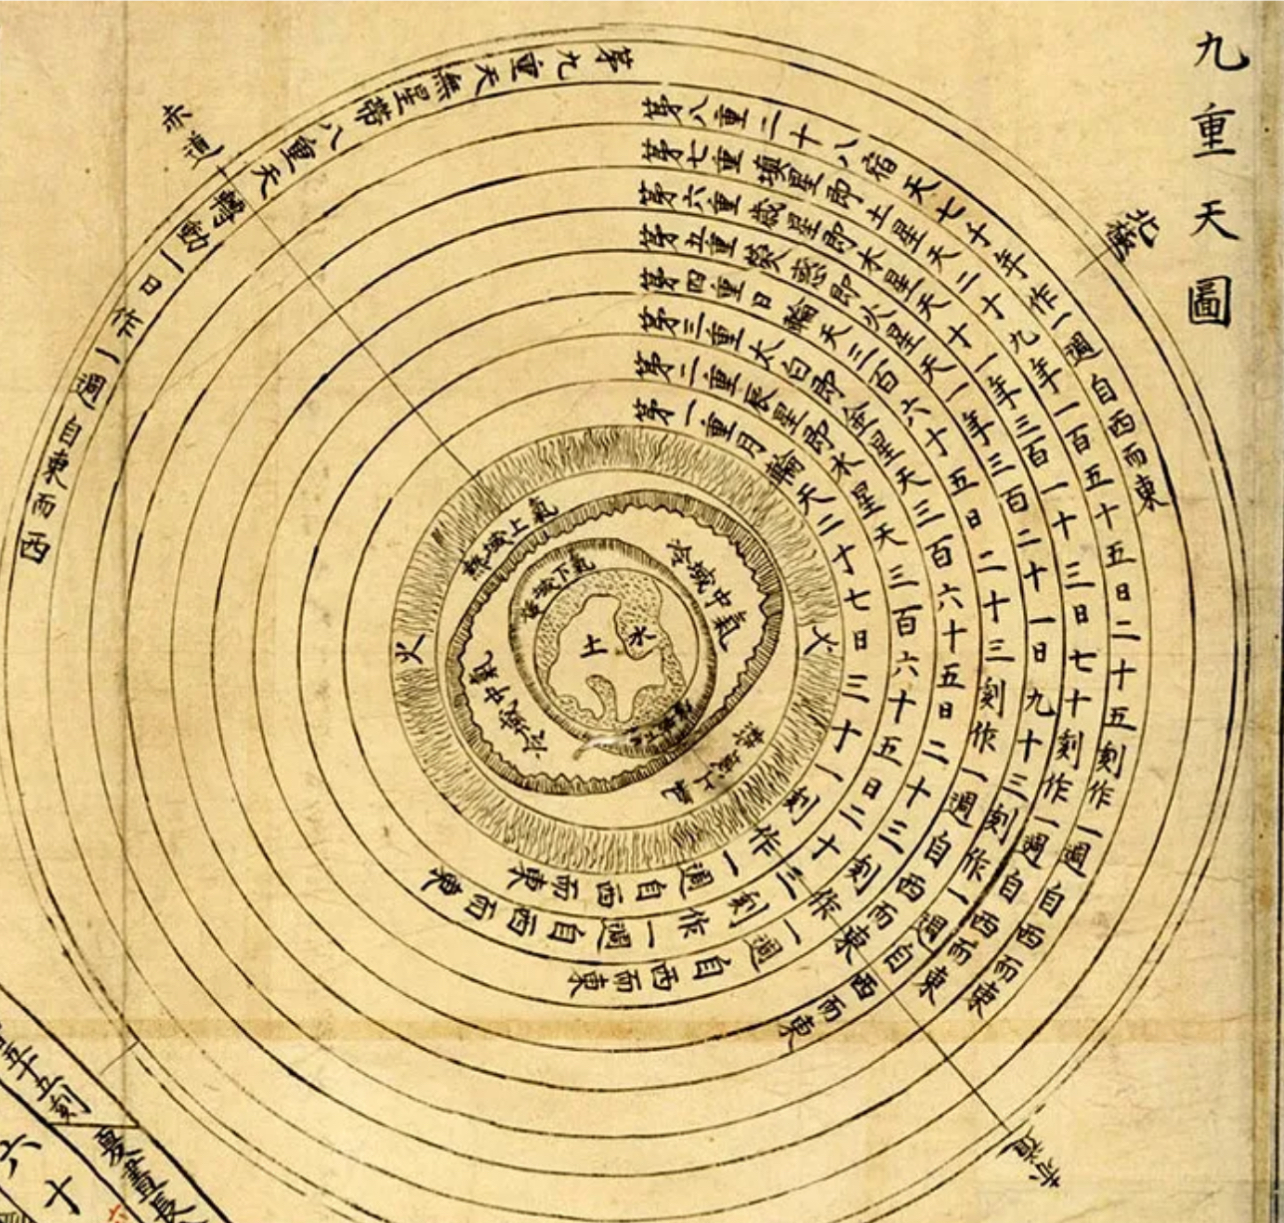 九重天圖
北極
赤道
第九重天無星帶八重天轉動一日作一週自東而西
第八重二十八宿天七千年作一週自西而東
第七重填星即土星天二十九年一百五十五日二十五刻作一週自西而東
第六重歲星即木星天十一年三百一十三日七十刻作一週自西而東
第五重熒惑即火星天一年三百二十一日九十三刻作一週自西而東
第四重日輪天三百六十五日二十三刻作一週自西而東
第三重太白即金星天三百六十五日二十三刻作一週自西而東
第二重辰星即水星天三百六十五日二十三刻作一週自西而東
第一重月輪天二十七日三十一刻作一週自西而東
火
火
熱域上氣
冷域中氣
煖域下氣
土
水
冷域中氣
熱域上氣
赤道
五十五刻
六十
夏晝長